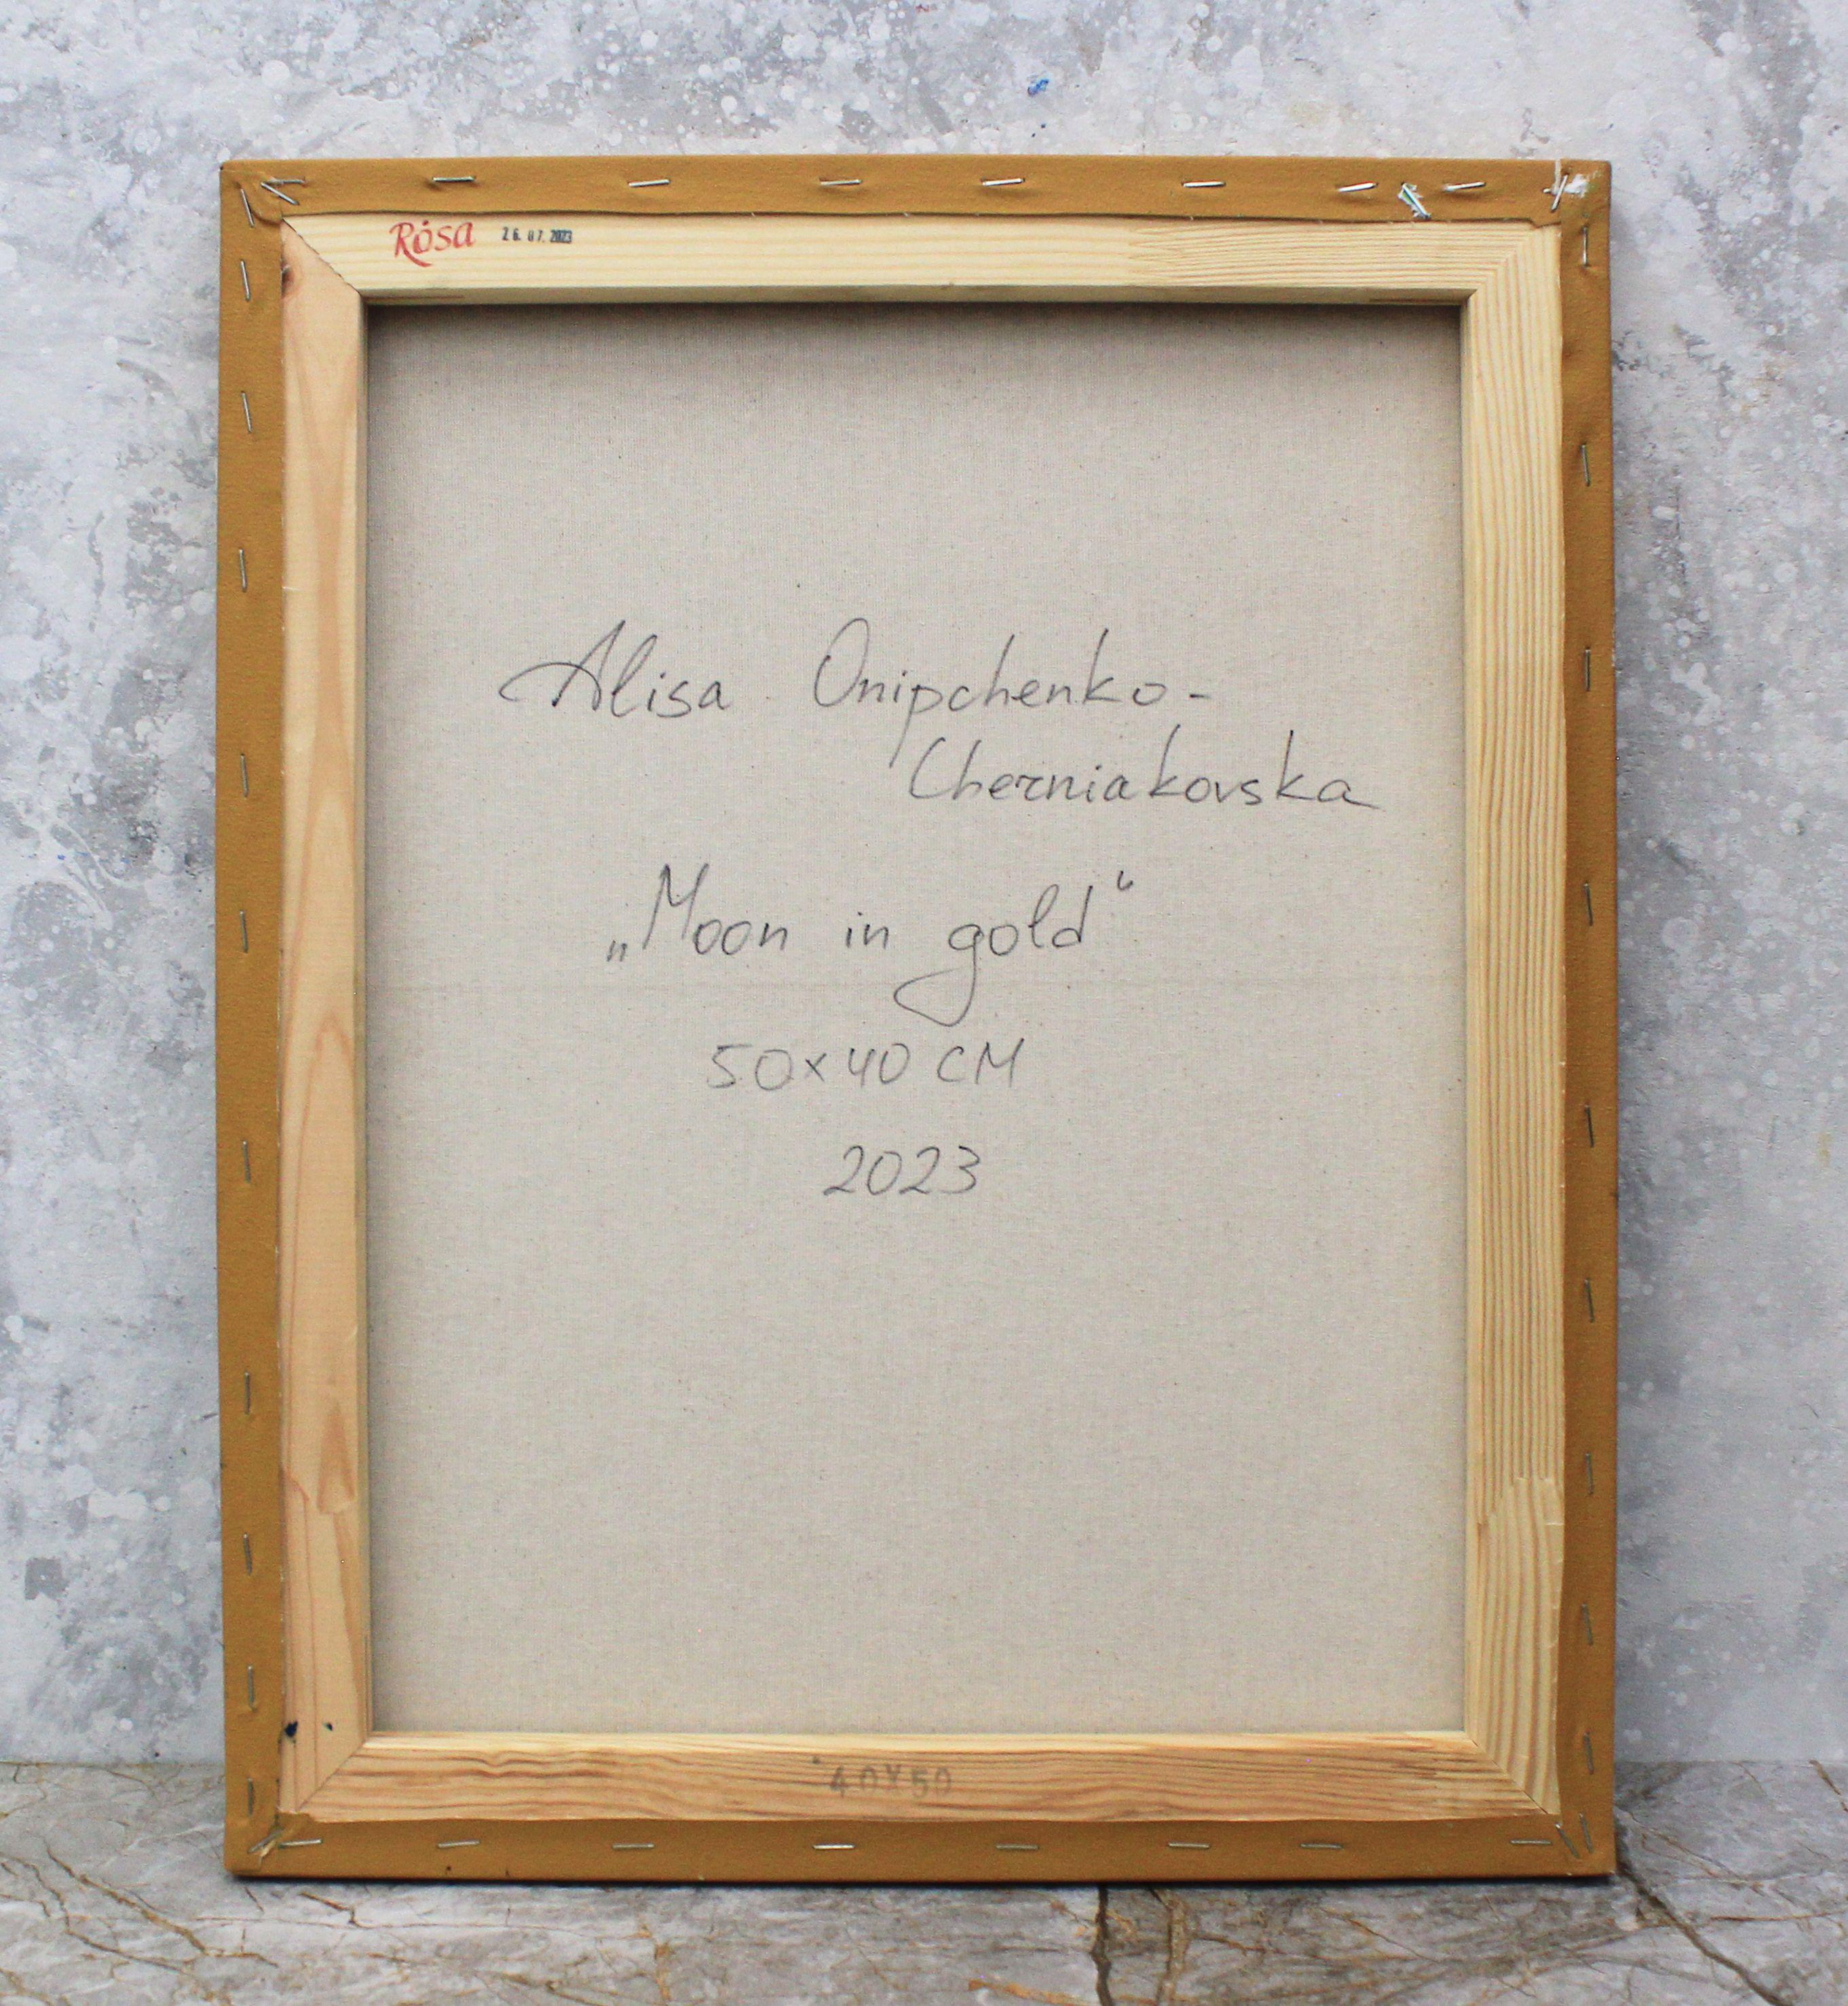 Rósa 26.07.2023
Alisa Onipchenko-
Cherniakovska
„Moon in gold“
50x40 CM
2023
40X50